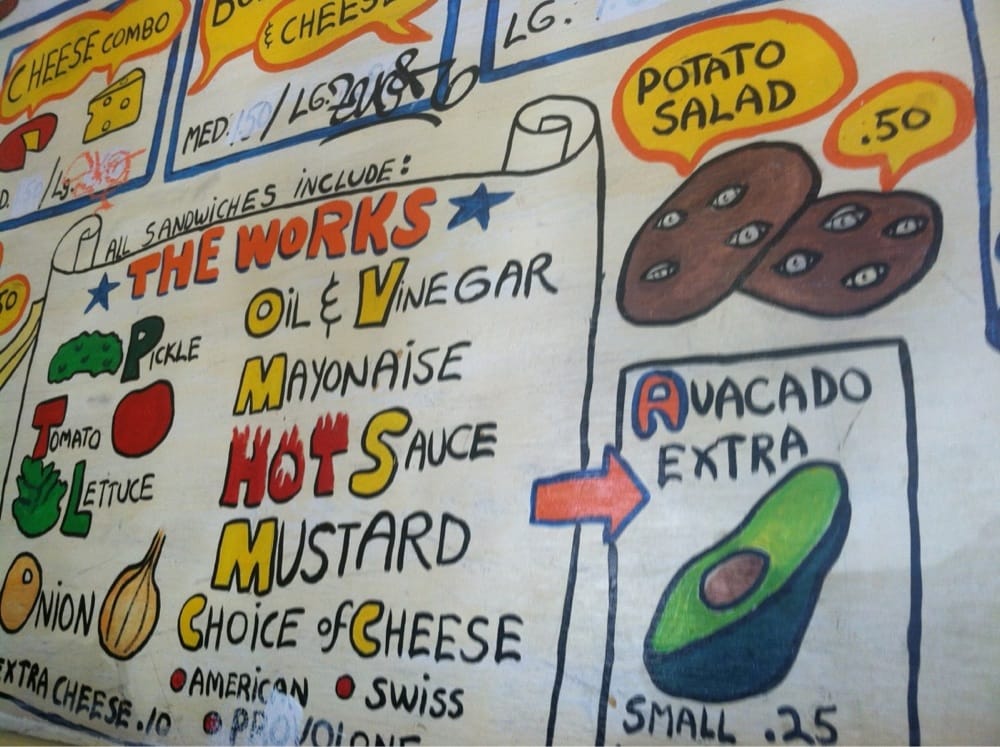 CHEESE COMBO
& CHEESE
MED. / LG.
/ Lg.
LG.
POTATO
SALAD
.50
ALL SANDWICHES INCLUDE:
THE WORKS
PICKLE
TOMATO
LETTUCE
ONION
EXTRA CHEESE .10
OIL & VINEGAR
MAYONAISE
HOT SAUCE
MUSTARD
CHOICE of CHEESE
AMERICAN
SWISS
PROVOLONE
AVACADO
EXTRA
SMALL .25